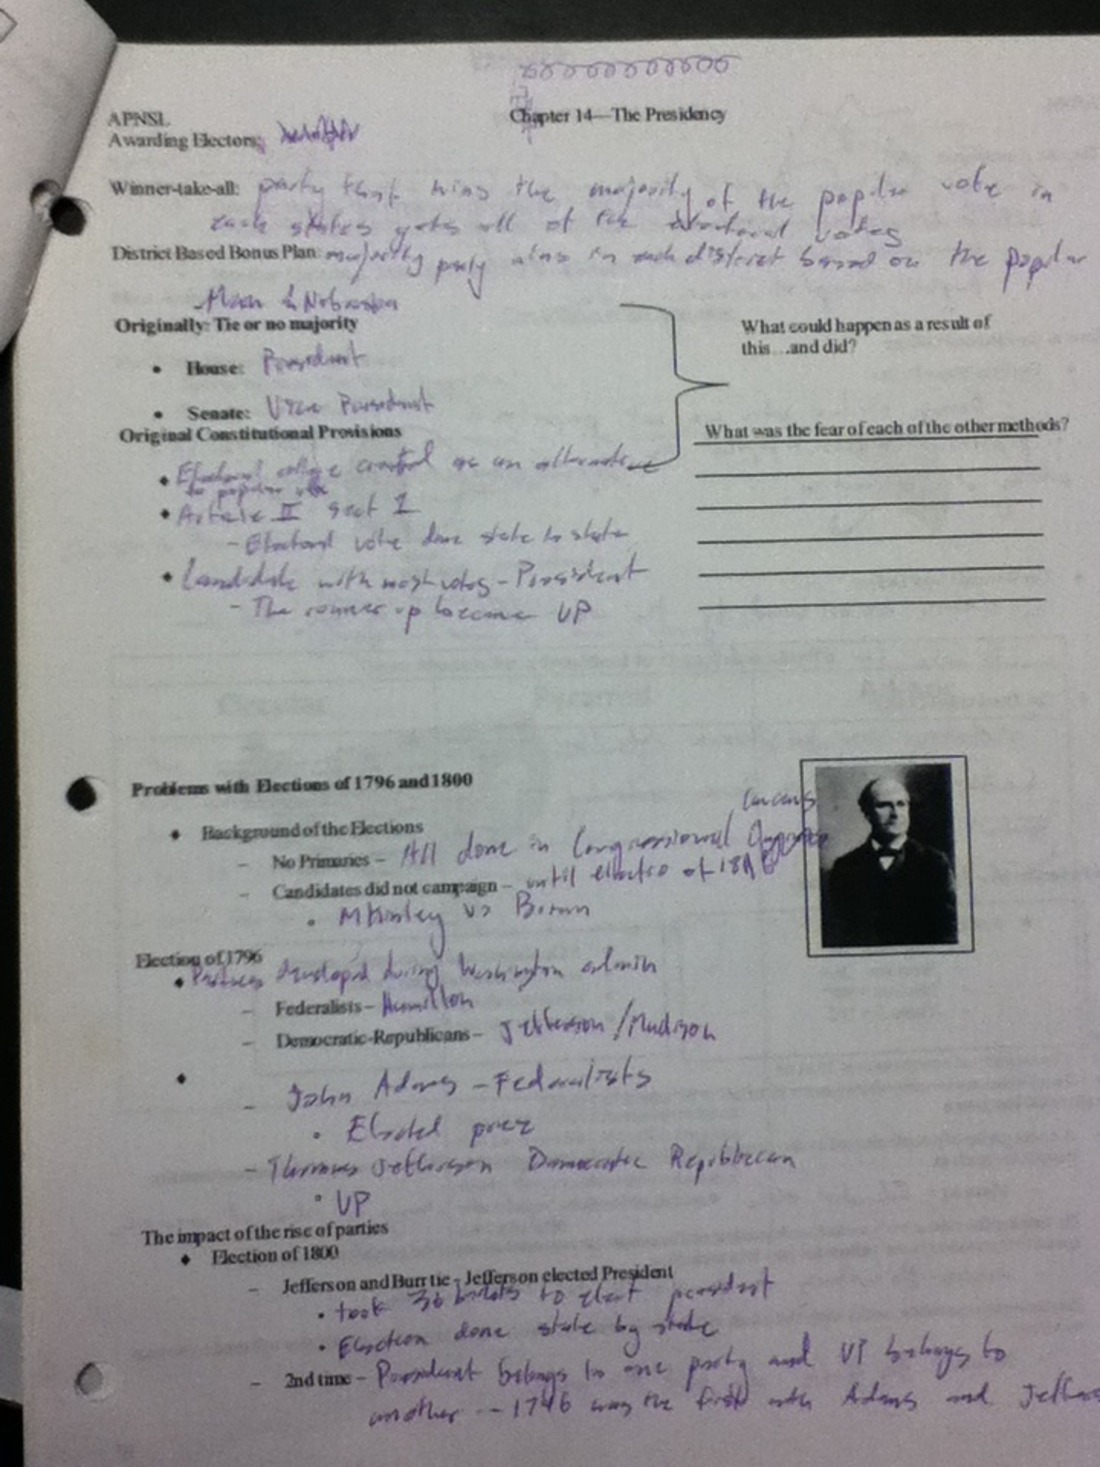 APNSL
Chapter 14—The Presidency
Awarding Electors:
Winner-take-all: party that wins the majority of the popular vote in
each states gets all of the electoral votes
District Based Bonus Plan: majority party wins in each district based on the popular
& Nebraska
Originally: Tie or no majority
• House: President
• Senate: Vice President
What could happen as a result of
this…and did?
What was the fear of each of the other methods?
Original Constitutional Provisions
• Electoral college as an alternative
to popular vote
• Article II sect 1
– Electoral vote done state to state
• Candidate with most votes – President
– The runner up became VP
Problems with Elections of 1796 and 1800
Background of the Elections
caucus
– No Primaries – All done in Congressional
– Candidates did not campaign – until
• McKinley vs
Election of 1796
• developed during Washington admin
– Federalists – Hamilton
– Democratic-Republicans – Jefferson/Madison
– John Adams – Federalists
• Elected prez
– Thomas Jefferson Democratic Republican
• VP
The impact of the rise of parties
Election of 1800
– Jefferson and Burr tie - Jefferson elected President
• took 36 ballots to elect president
• Election done state by state
– 2nd time – President belongs to one party and VP belongs to
another -- was the first with Adams and